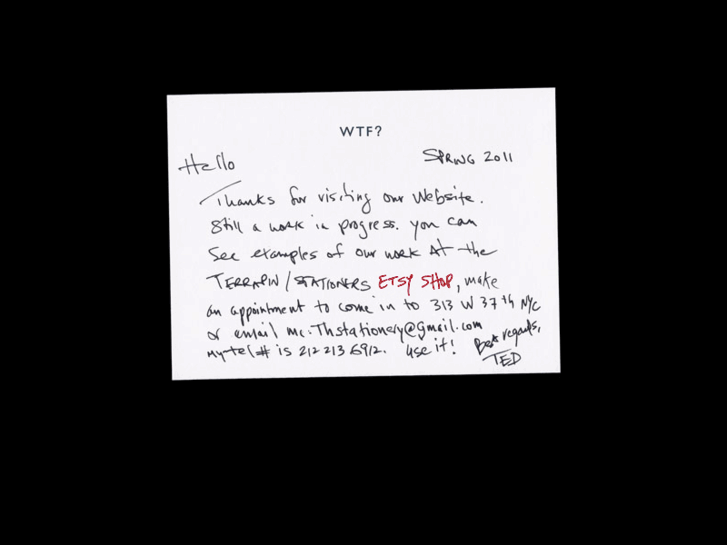 WTF?
Hello SPRING 2011
Thanks for visiting our website.
Still a work in progress. you can
See examples of our work At the
TERRAPIN/STATIONERS ETSY SHOP, make
an appointment to come in to 313 W 37th NYC
or email mc.Thstationery@gmail.com
my tel# is 212 213 6912. use it! Best regards,
TED